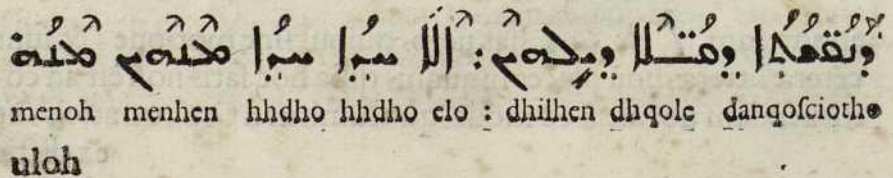 ܕܢܩ̈ܫܬܐ ܕܩܳܠ̈ܐ ܕܺܝܠܗܶܝܢ : ܐܶܠܳܐ ܚܕܳܐ ܚܕܳܐ ܡܶܢܗܶܝܢ ܡܶܢܳܗ
menoh menhen hhdho hhdho elo : dhilhen dhqole danqoſciotho
uloh